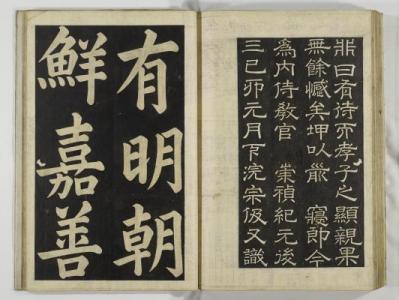 非曰有待亦孝子之顯親果
無餘憾矣坤以能 寢郎今
爲内侍教官 崇禎紀元後
三己卯元月下浣宗伋又識
有明朝
鮮嘉善